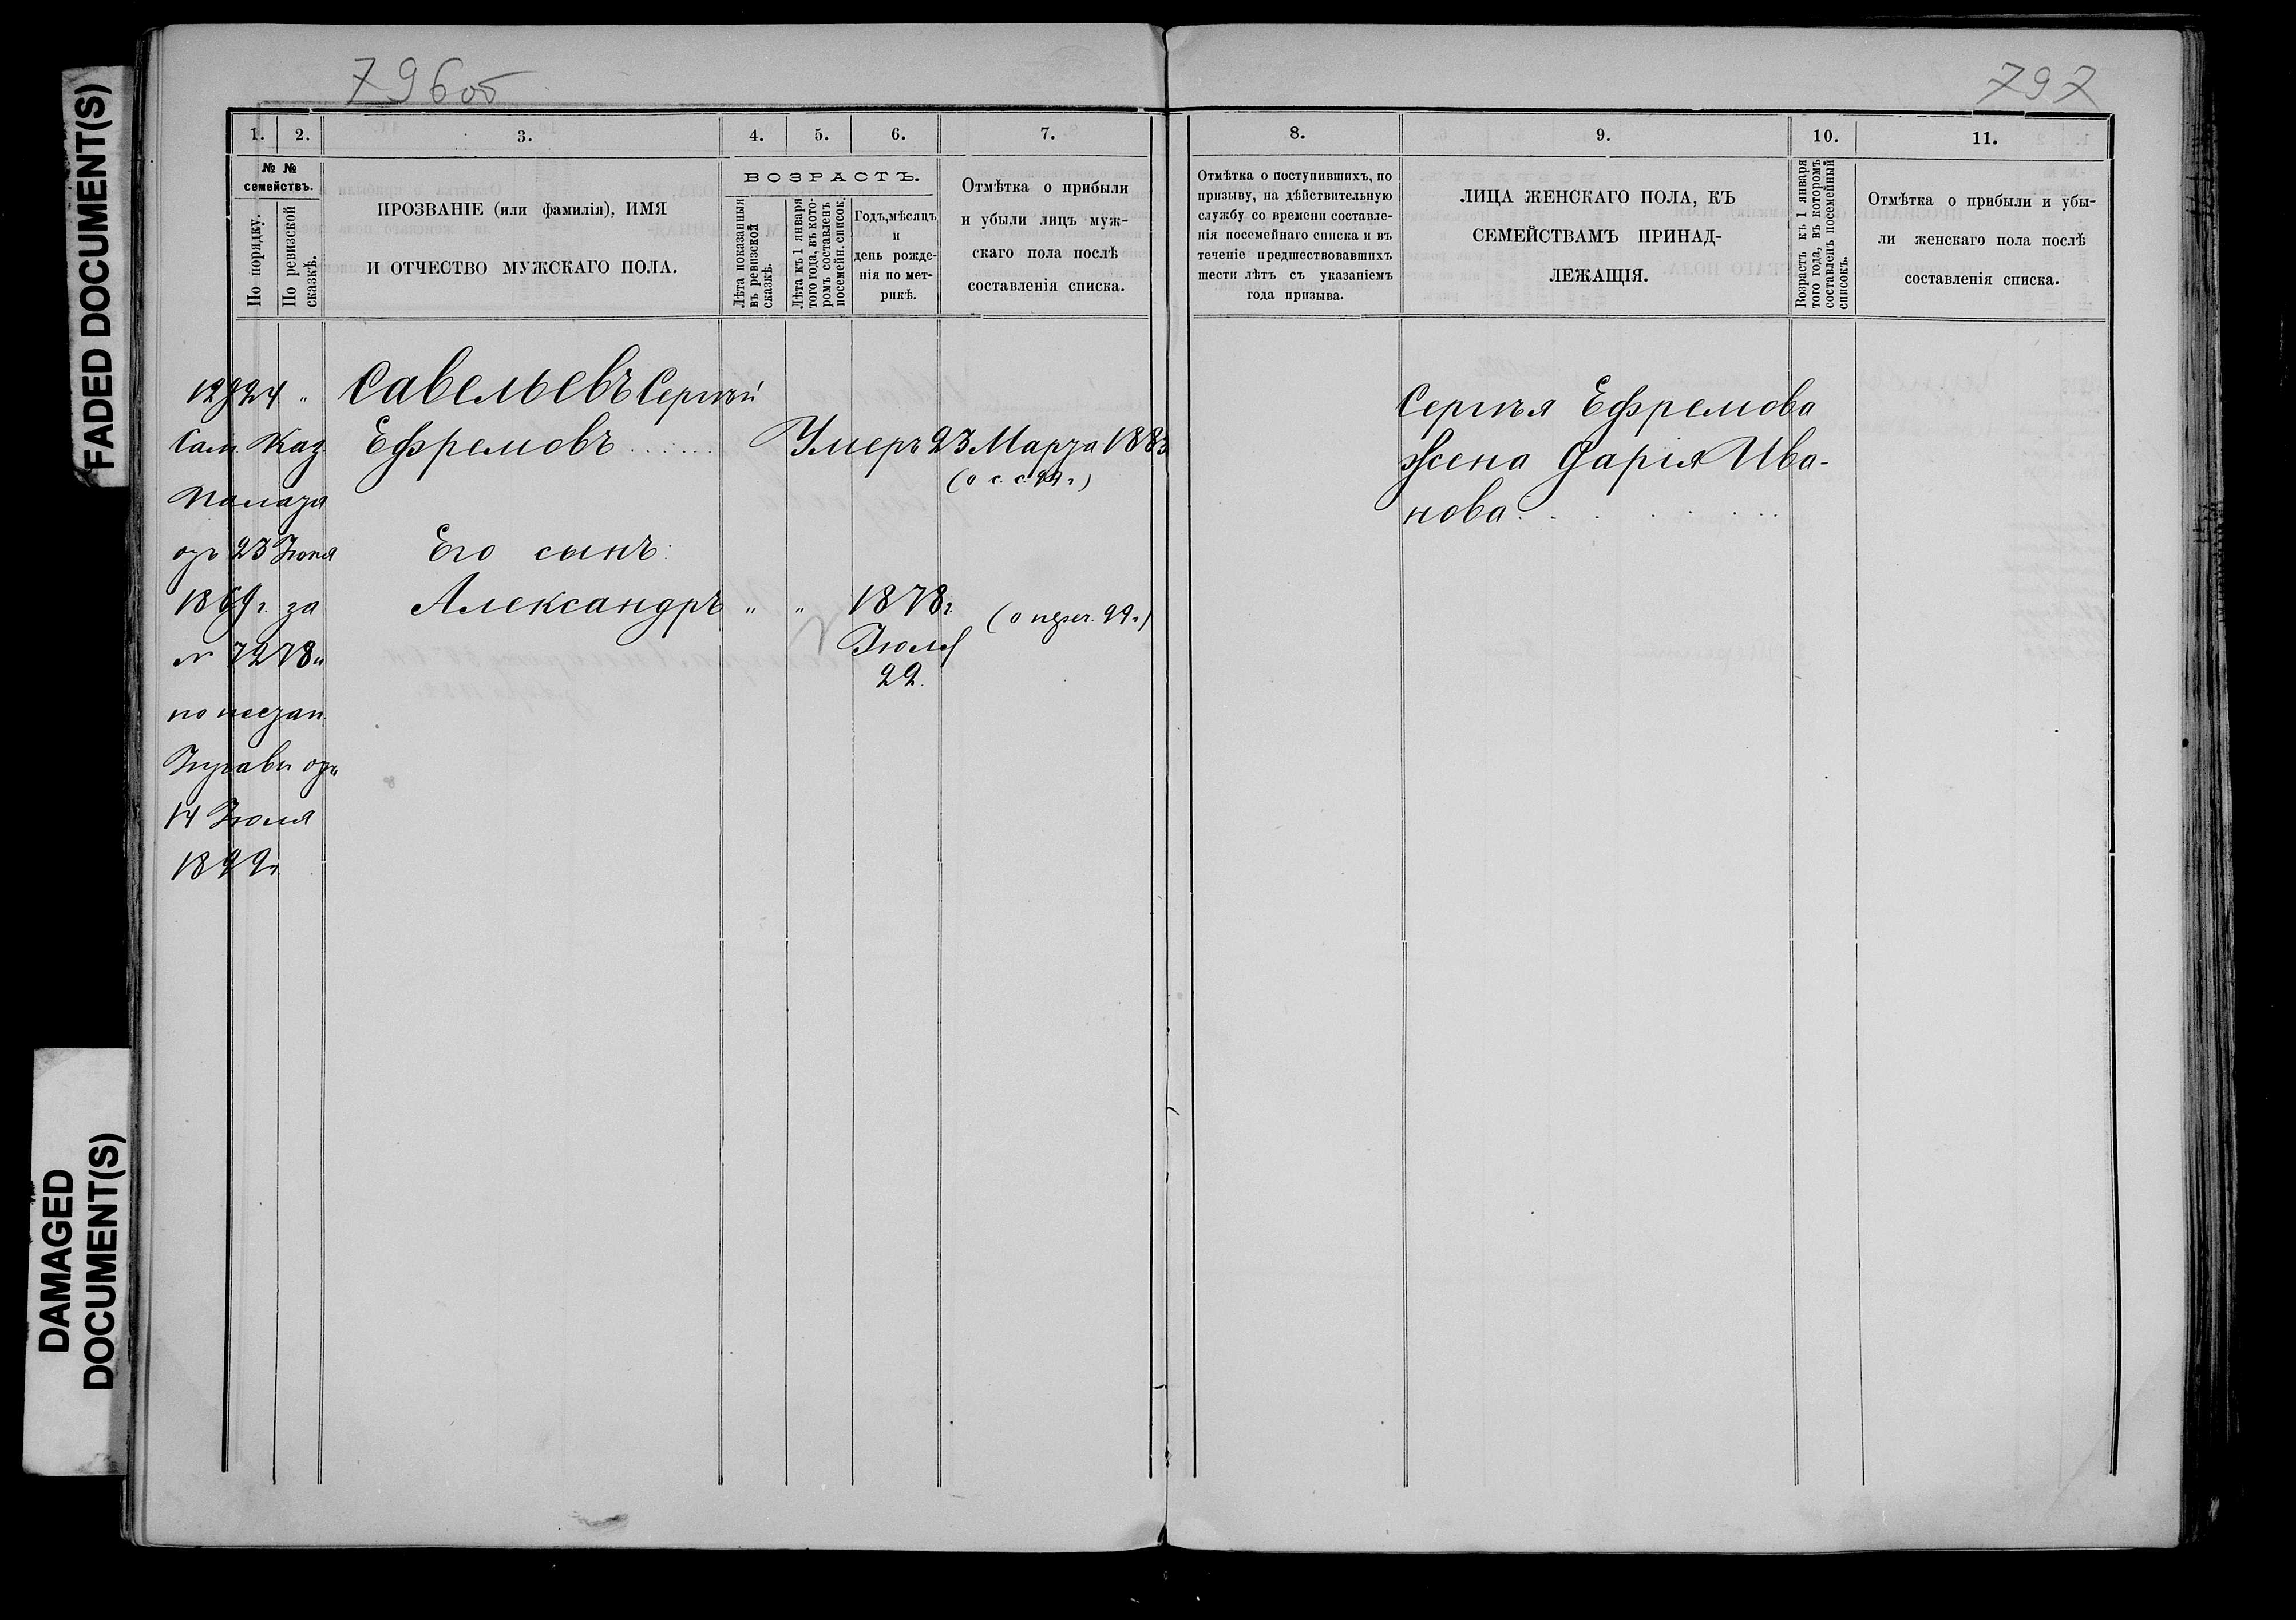 FADED DOCUMENT(S)
DAMAGED
DOCUMENT(S)
796об
797
1.
2.
3.
4.
5.
6.
7.
№ №
семействъ.
По порядку.
По ревизской
сказкѣ.
ПРОЗВАНІЕ (или фамилія), ИМЯ
И ОТЧЕСТВО МУЖСКАГО ПОЛА.
ВОЗРАСТЪ.
Лѣта показанныя
въ ревизской
сказкѣ.
Лѣта къ 1 января
того года, въ кото-
ромъ составленъ
посемейн. списокъ.
Годъ, мѣсяцъ
и
день рожде-
нія по мет-
рикѣ.
Отмѣтка о прибыли
и убыли лицъ муж-
скаго пола послѣ
составленія списка.
12924 "
Сам. Каз.
Палата
отъ 23 Іюня
1869 г. за
№ 7278 и
по
отъ
14 Іюля
1899 г.
Савельевъ Сергѣй
Ефремовъ . . . . . .
Умеръ 23 Марта 1883
(о с. с. 99 г)
Его сынъ:
Александръ " " 1878 г.
Іюля
22.
99 г)
8.
9.
10.
11.
Отмѣтка о поступившихъ, по
призыву, на дѣйствительную
службу со времени составле-
нія посемейнаго списка и въ
теченіе предшествовавшихъ
шести лѣтъ съ указаніемъ
года призыва.
ЛИЦА ЖЕНСКАГО ПОЛА, КЪ
СЕМЕЙСТВАМЪ ПРИНАД-
ЛЕЖАЩІЯ.
Возрастъ къ 1 января
того года, въ которомъ
составленъ посемейный
списокъ.
Отмѣтка о прибыли и убы-
ли женскаго пола послѣ
составленія списка.
Сергѣя Ефремова
жена Дарія Ива-
нова . . . . . . .